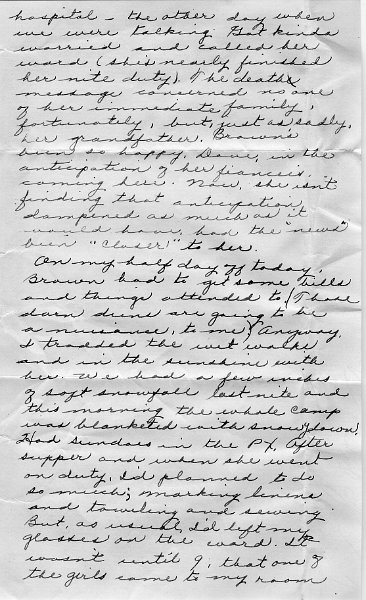 hospital – the other day when
we were talking. Pat kinda
worried and called her
ward (she's nearly finished
her nite duty). The death
message concerned no one
of her immediate family,
fortunately, but, just as sadly,
her grandfather. Brown's
been so happy, Dave, in the
anticipation of her fiance's
coming here. Now, she isn't
finding that anticipation
dampened as much as it
would have, had the "news"
been "closer!" to her.
On my half day off today,
Brown had to get some bills
and things attended to (Those
darn dues are going to be
a nuisance, to me!) Anyway,
I trodded the wet walks
and in the sunshine with
her. We had a few inches
of soft snowfall last nite and
this morning the whole camp
was blanketed with snow (down).
Had sundaes in the PX. After
supper and when she went
on duty, I'd planned to do
so much; marking linens
and toweling and sewing.
But, as usual, I'd left my
glasses on the ward. It
wasn't until 9, that one of
the girls came to my room